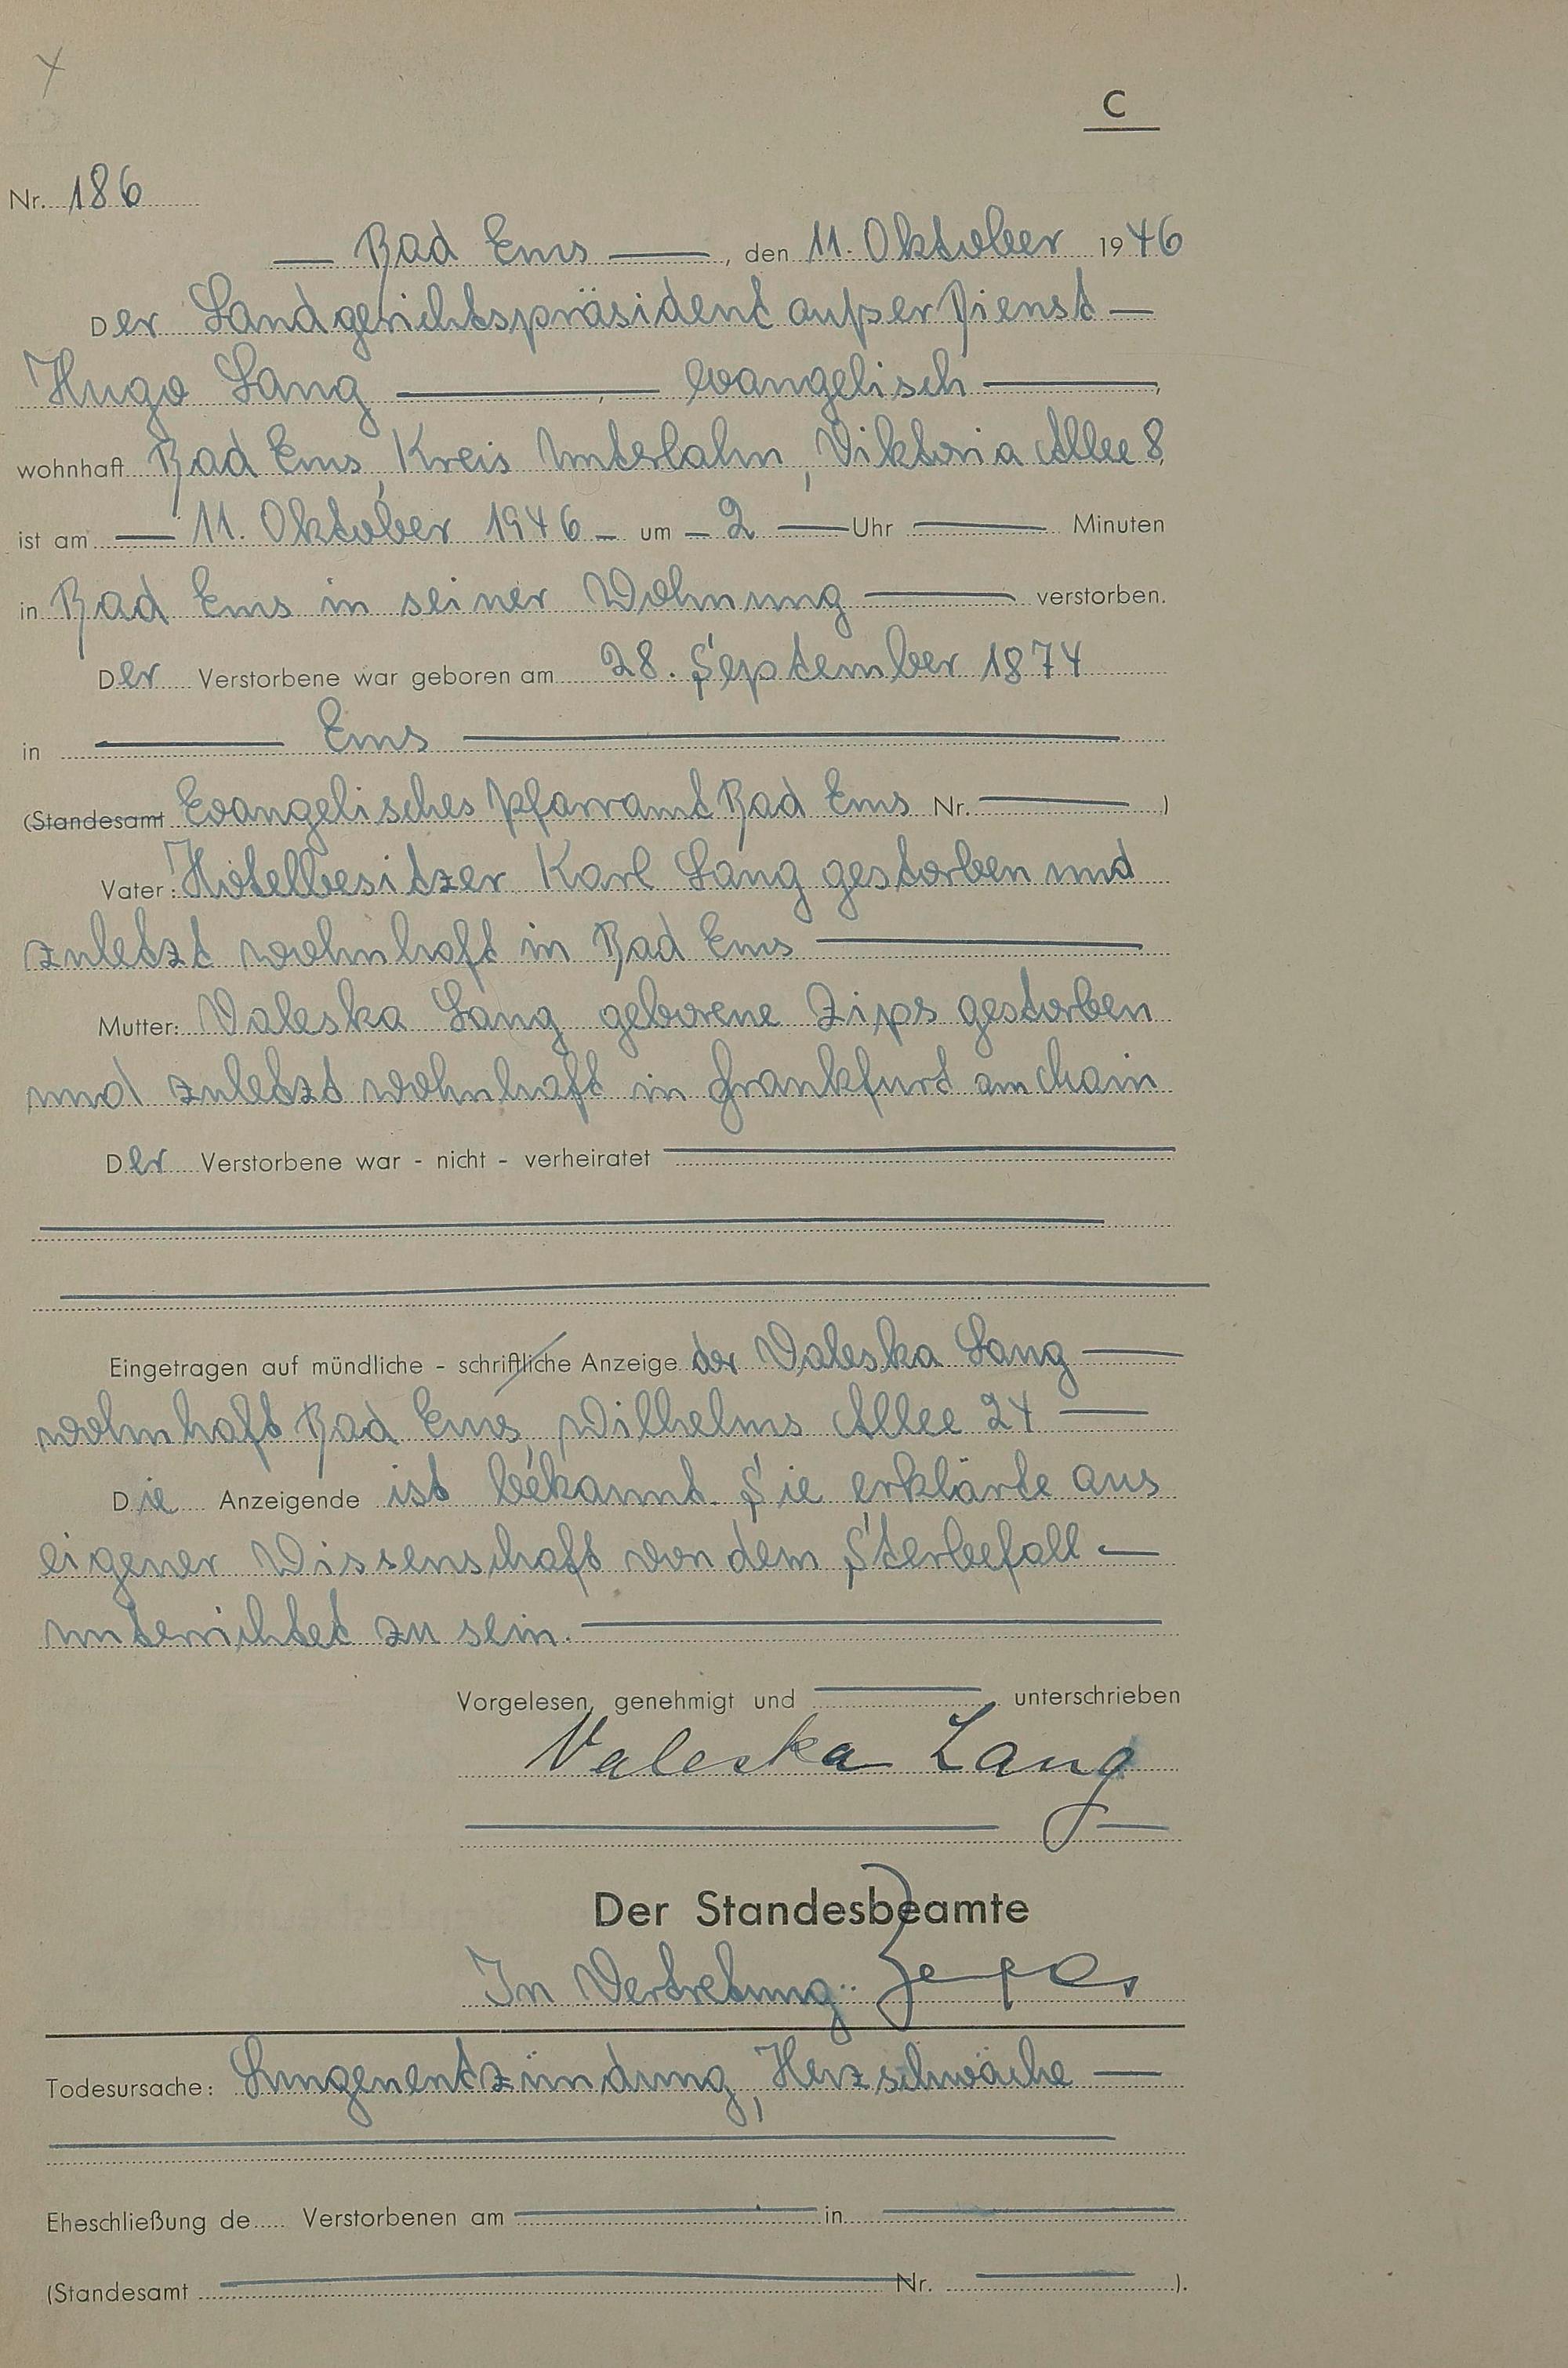 C
Nr. 186
— Bad Ems —, den 11. Oktober 1946
Der Landgerichtspräsident außer Dienst —
Hugo Lang —, — evangelisch —,
wohnhaft Bad Ems, Kreis Unterlahn, Viktoria Allee 8,
ist am — 11. Oktober 1946 — um — 2 — Uhr — Minuten
in Bad Ems in seiner Wohnung — verstorben.
Der Verstorbene war geboren am 28. September 1874
in — Ems —
(Standesamt Evangelisches Pfarramt Bad Ems Nr. — )
Vater: Hotelbesitzer Karl Lang gestorben und
zuletzt wohnhaft in Bad Ems —
Mutter: Valeska Lang geborene Zips gestorben
und zuletzt wohnhaft in Frankfurt am Main
Der Verstorbene war - nicht - verheiratet —
Eingetragen auf mündliche - schriftliche Anzeige der Valeska Lang —
wohnhaft Bad Ems, Wilhelms Allee 24 —
Die Anzeigende ist bekannt. Sie erklärte aus
eigener Wissenschaft von dem Sterbefall —
unterrichtet zu sein. —
Vorgelesen, genehmigt und — unterschrieben
Valeska Lang
Der Standesbeamte
In Vertretung:
Todesursache: Lungenentzündung, Herzschwäche —
Eheschließung de..... Verstorbenen am — in —
(Standesamt — Nr. — ).